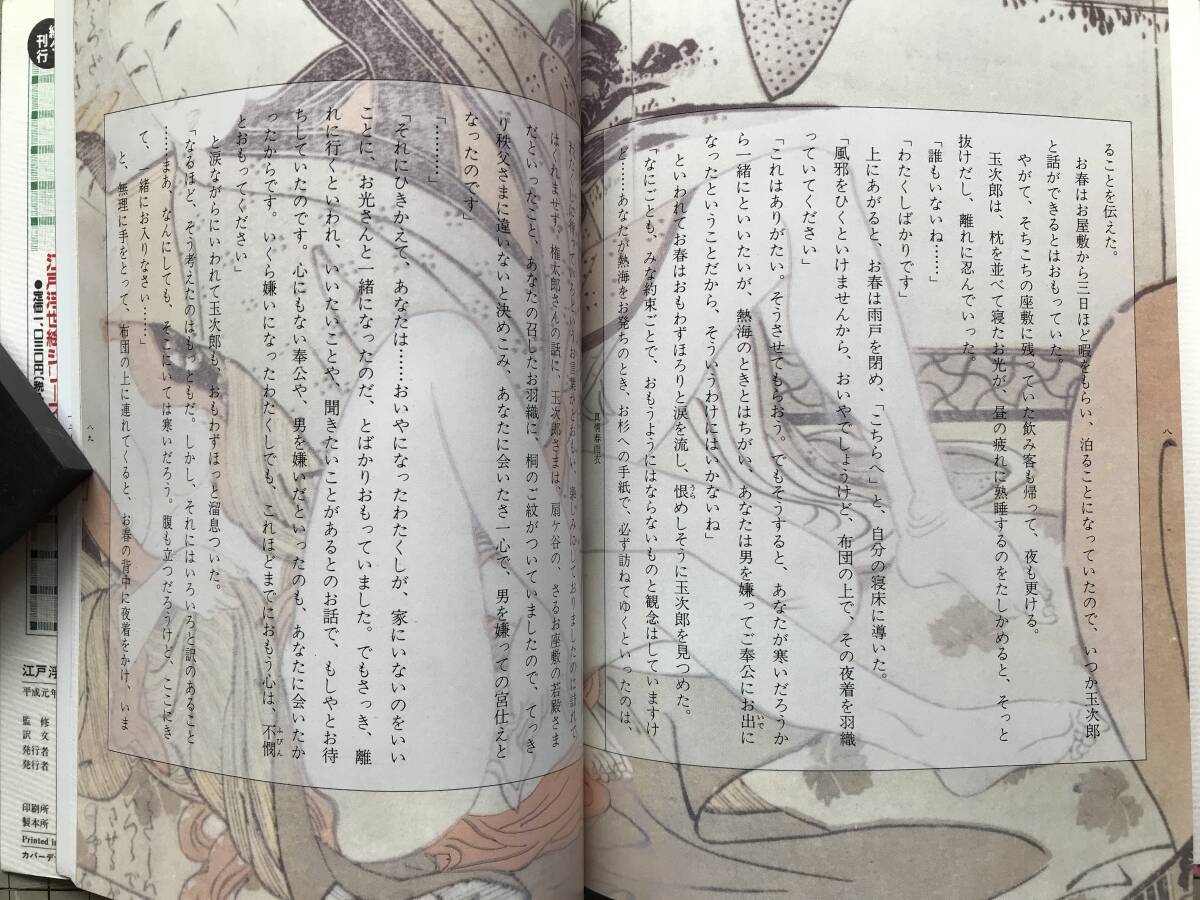 ることを伝えた。
お春はお屋敷から三日ほど暇をもらい、泊ることになっていたので、いつか玉次郎
と話ができるとはおもっていた。
やがて、そちこちの座敷に残っていた飲み客も帰って、夜も更ける。
玉次郎は、枕を並べて寝たお光が、昼の疲れに熟睡するのをたしかめると、そっと
抜けだし、離れに忍んでいった。
「誰もいないね……」
「わたくしばかりです」
上にあがると、お春は雨戸を閉め、「こちらへ」と、自分の寝床に導いた。
「風邪をひくといけませんから、おいやでしょうけど、布団の上で、その夜着を羽織
っていてください」
「これはありがたい。そうさせてもらおう。でもそうすると、あなたが寒いだろうか
ら一緒にといいたいが、熱海のときとはちがい、あなたは男を嫌ってご奉公にお出に
いで
なったということだから、そういうわけにはいかないね」
といわれてお春はおもわずほろりと涙を流し、恨めしそうに玉次郎を見つめた。
うら
「なにごとも、みな約束ごとで、おもうようにはならないものと観念はしていますけ
ど……あなたが熱海をお発ちのとき、お杉への手紙で、必ず訪ねてゆくといったのは、
真情春雨衣
八
は、れませず。権太郎さんの話に、玉次郎さまは、扇ケ谷の、さるお座敷の若殿さま
だといったこと、あなたの召したお羽織に、桐のご紋がついていましたので、てっき
り秩父さまに違いないと決めこみ、あなたに会いたさ一心で、男を嫌っての宮仕えと
なったのです」
「………」
「それにひきかえて、あなたは……おいやになったわたくしが、家にいないのをいい
ことに、お光さんと一緒になったのだ、とばかりおもっていました。でもさっき、離
れに行くといわれ、いいたいことや、聞きたいことがあるとのお話で、もしやとお待
ちしていたのです。心にもない奉公や、男を嫌いだといったのも、あなたに会いたか
ったからです。いくら嫌いになったわたくしでも、これほどまでにおもう心は、不憫
ふびん
とおもってください」
と涙ながらにいわれて玉次郎も、おもわずほっと溜息ついた。
「なるほど、そう考えたのはもっともだ。しかし、それにはいろいろと訳のあること
……まあ、なんにしても、そこにいては寒いだろう。腹も立つだろうけど、ここにき
て、一緒にお入りなさい……」
と、無理に手をとって、布団の上に連れてくると、お春の背中に夜着をかけ、いま
八九
刊行
江戸浮世絵シリーズ
江戸浮
平成元年
監修
訳文
発行者
発行者
印刷所
製本所
Printed in
カバーデ